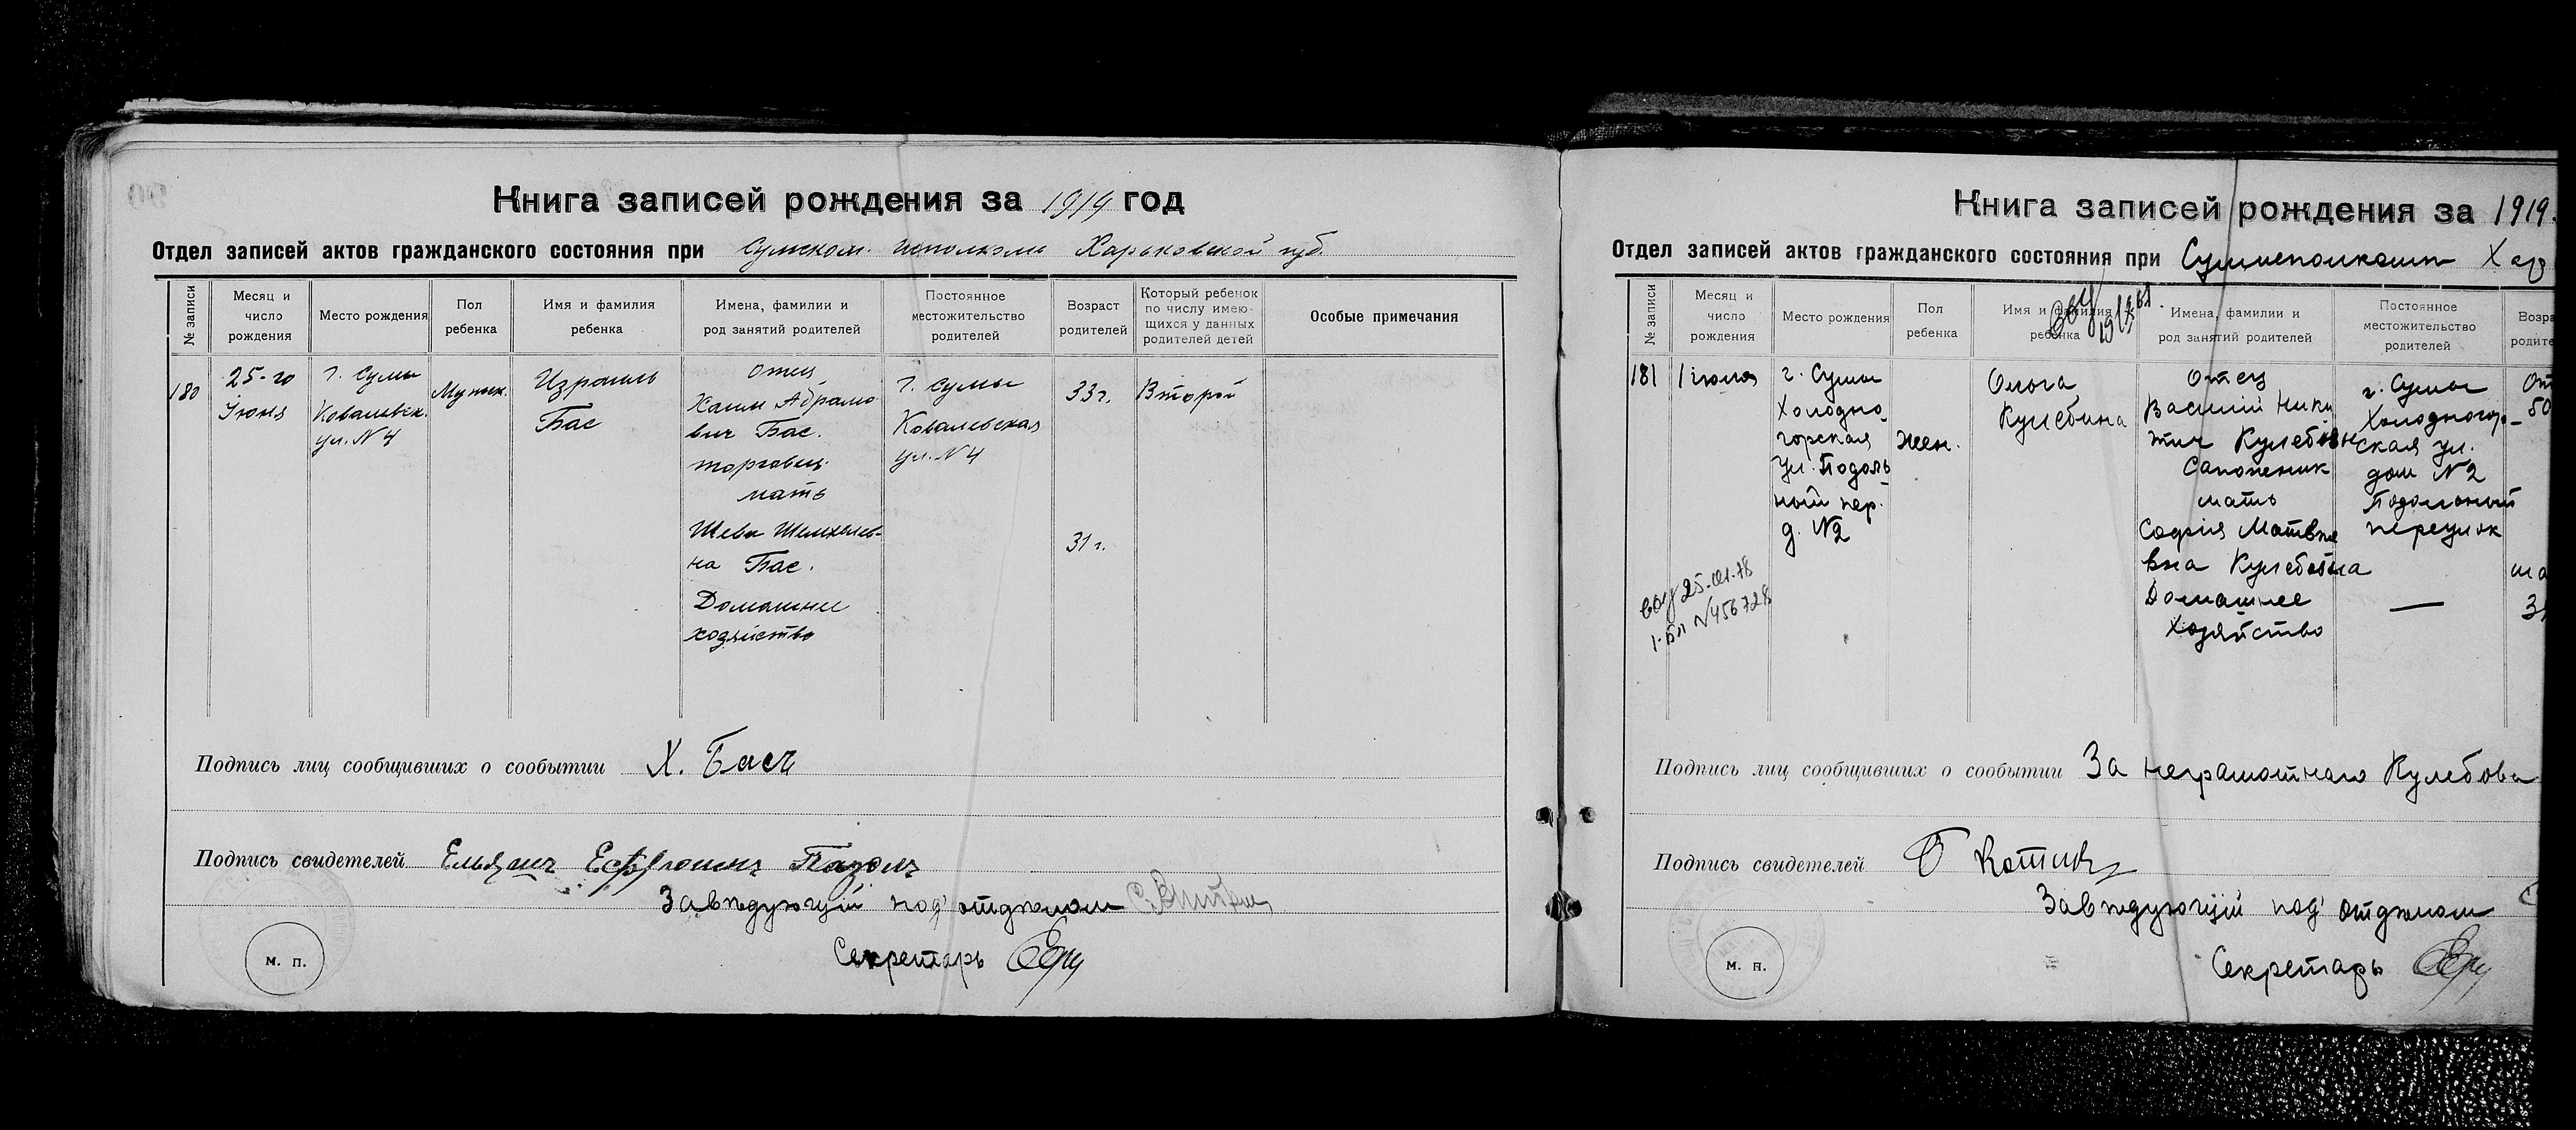 Книга записей рождения за 1919 год
Отдел записей актов гражданского состояния при Сумском исполкоме Харьковской губ.
№ записи
Месяц и
число
рождения
Место рождения
Пол
ребенка
Имя и фамилия
ребенка
Имена, фамилии и
род занятий родителей
Постоянное
местожительство
родителей
Возраст
родителей
Который ребенок
по числу имею-
щихся у данных
родителей детей
Особые примечания
180
25-го
Июня
г. Сумы
Ковалевск.
ул. № 4
Мужск.
Израиль
Бас
Отец
Хаим Абрамо
вич Бас.
торговец
мать
Шева
на Бас.
Домашнее
хозяйство
г. Сумы
Ковалевская
ул. № 4
33 г.
31 г.
Второй
Подпись лиц сообщивших о сообытии Х. Басъ
Подпись свидетелей
Завѣдующій под'отдѣлом
Секретарь
м. п.
Книга записей рождения за 1919.
Отдел записей актов гражданского состояния при Сумисполкоме Хар
№ записи
Месяц и
число
рождения
Место рождения
Пол
ребенка
Имя и фамилия
ребенка
Имена, фамилии и
род занятий родителей
Постоянное
местожительство
родителей
Возра
родите
181
1 июля
г. Сумы
Холодно
горская
ул. Подоль
ный пер.
д. № 2
жен.
Ольга
Кулебина
Отец
Василій Ники
тич
Сапожник
мать
Софія Матвѣе
вна
Домашнее
Хозяйство
г. Сумы
Холодногор-
ская ул.
дом № 2
Подольный
переулок
—
От
50
ма
3
25.01.78
№ 456728
Подпись лиц сообщивших о сообытии За неграмотнаго Кулебова
Подпись свидетелей О Котик
Завѣдующій под' отдѣлом
Секретарь
м. п.